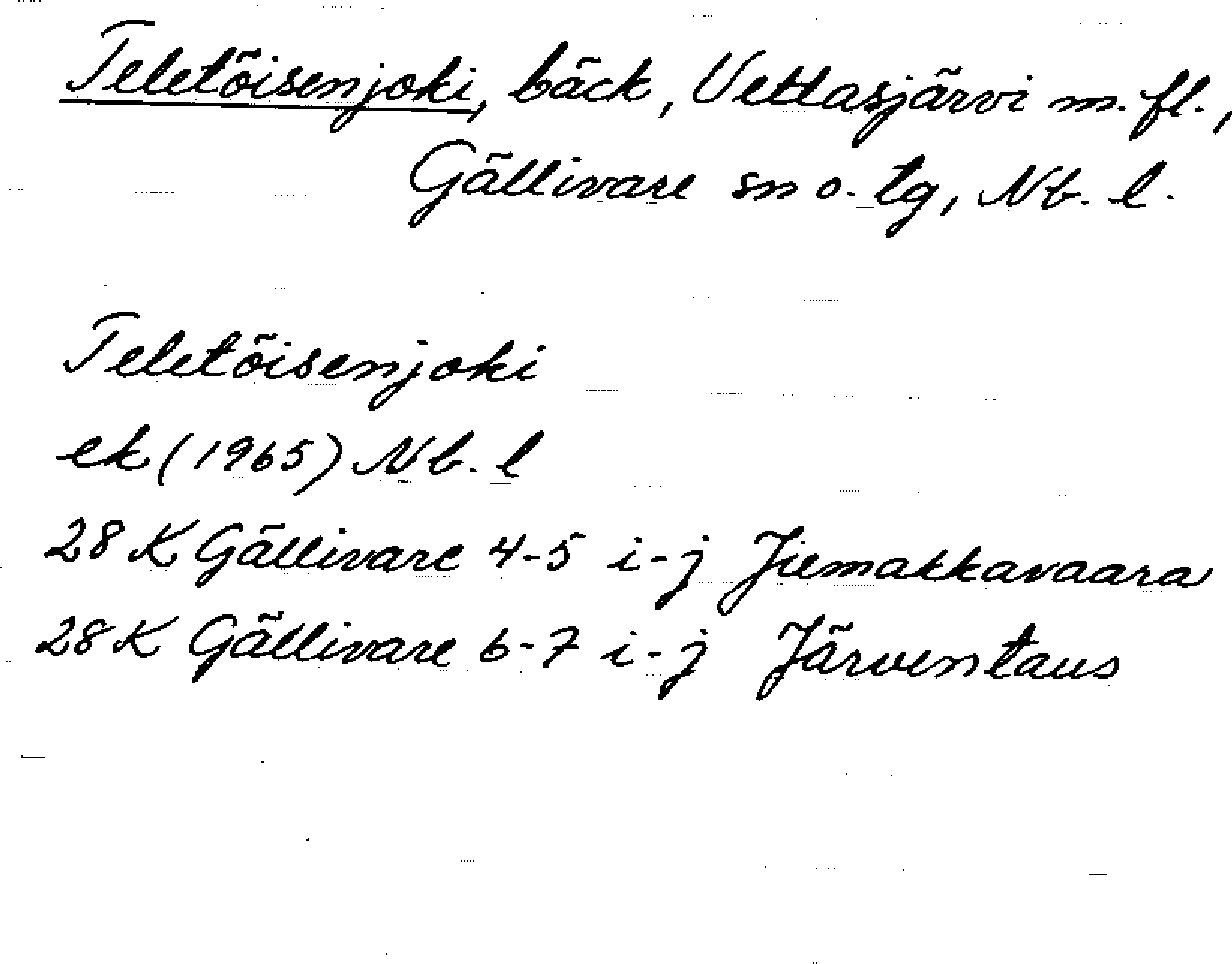 Teletöisenjoki, bäck, Vettasjärvi m. fl.,
Gällivare sn o. tg, Nb. l.
Teletöisenjoki
ek (1965) Nb. l
28 K Gällivare 4-5 i-j Jiemakkavaara
28 K Gällivare 6-7 i-j Järventaus